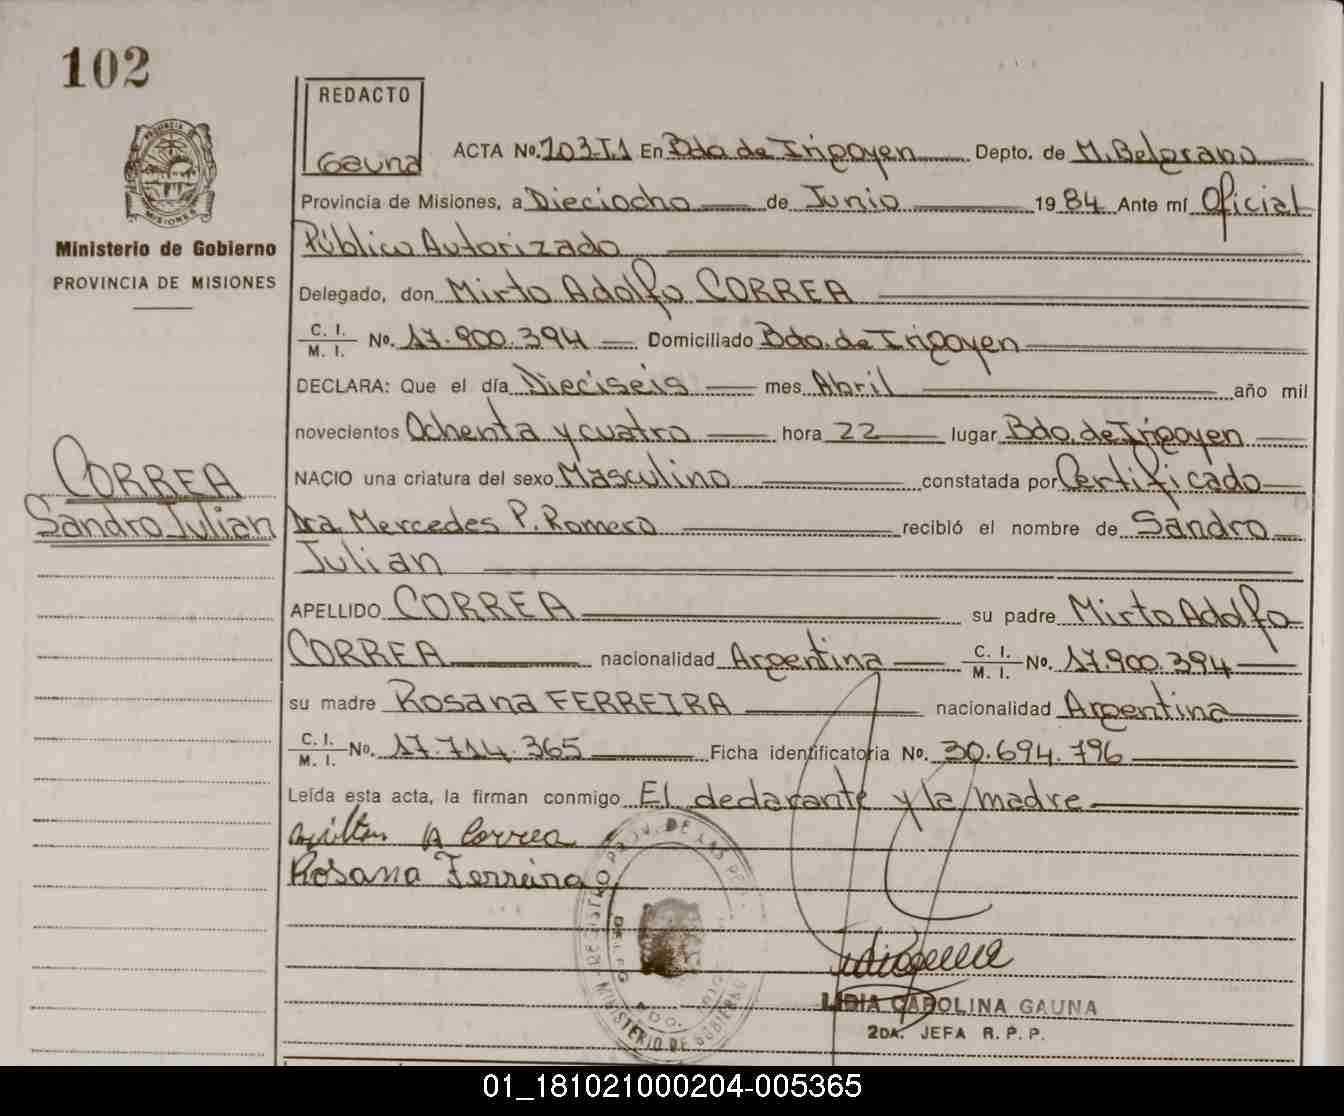 102
REDACTO
Gauna
PROVINCIA DE
MISIONES
Ministerio de Gobierno
PROVINCIA DE MISIONES
ACTA No. 103-T.1 En Bdo de Irigoyen Depto. de M. Belgrano
Provincia de Misiones, a Dieciocho de Junio 1984 Ante mí Oficial
Público Autorizado
Delegado, don Mirto Adolfo CORREA
C. I. / M. I. No. 17.900.394 Domiciliado Bdo. de Irigoyen
DECLARA: Que el día Dieciseis mes Abril año mil
novecientos Ochenta y cuatro hora 22 lugar Bdo. de Irigoyen
CORREA
Sandro Julian
NACIO una criatura del sexo Masculino constatada por Certificado
Dra Mercedes P. Romero recibló el nombre de Sandro
Julian
APELLIDO CORREA su padre Mirto Adolfo
CORREA nacionalidad Argentina C. I. / M. I. No. 17.900.394
su madre Rosana FERREIRA nacionalidad Argentina
C. I. / M. I. No. 17.714.365 Ficha identificatoria No. 30.694.796
Leída esta acta, la firman conmigo El declarante y la madre
A Correa
Rosana Ferreira
REGISTRO PROV. DE LAS
MINISTERIO DE GOBIERNO
LIDIA CAROLINA GAUNA
2DA. JEFA R. P. P.
01_181021000204-005365